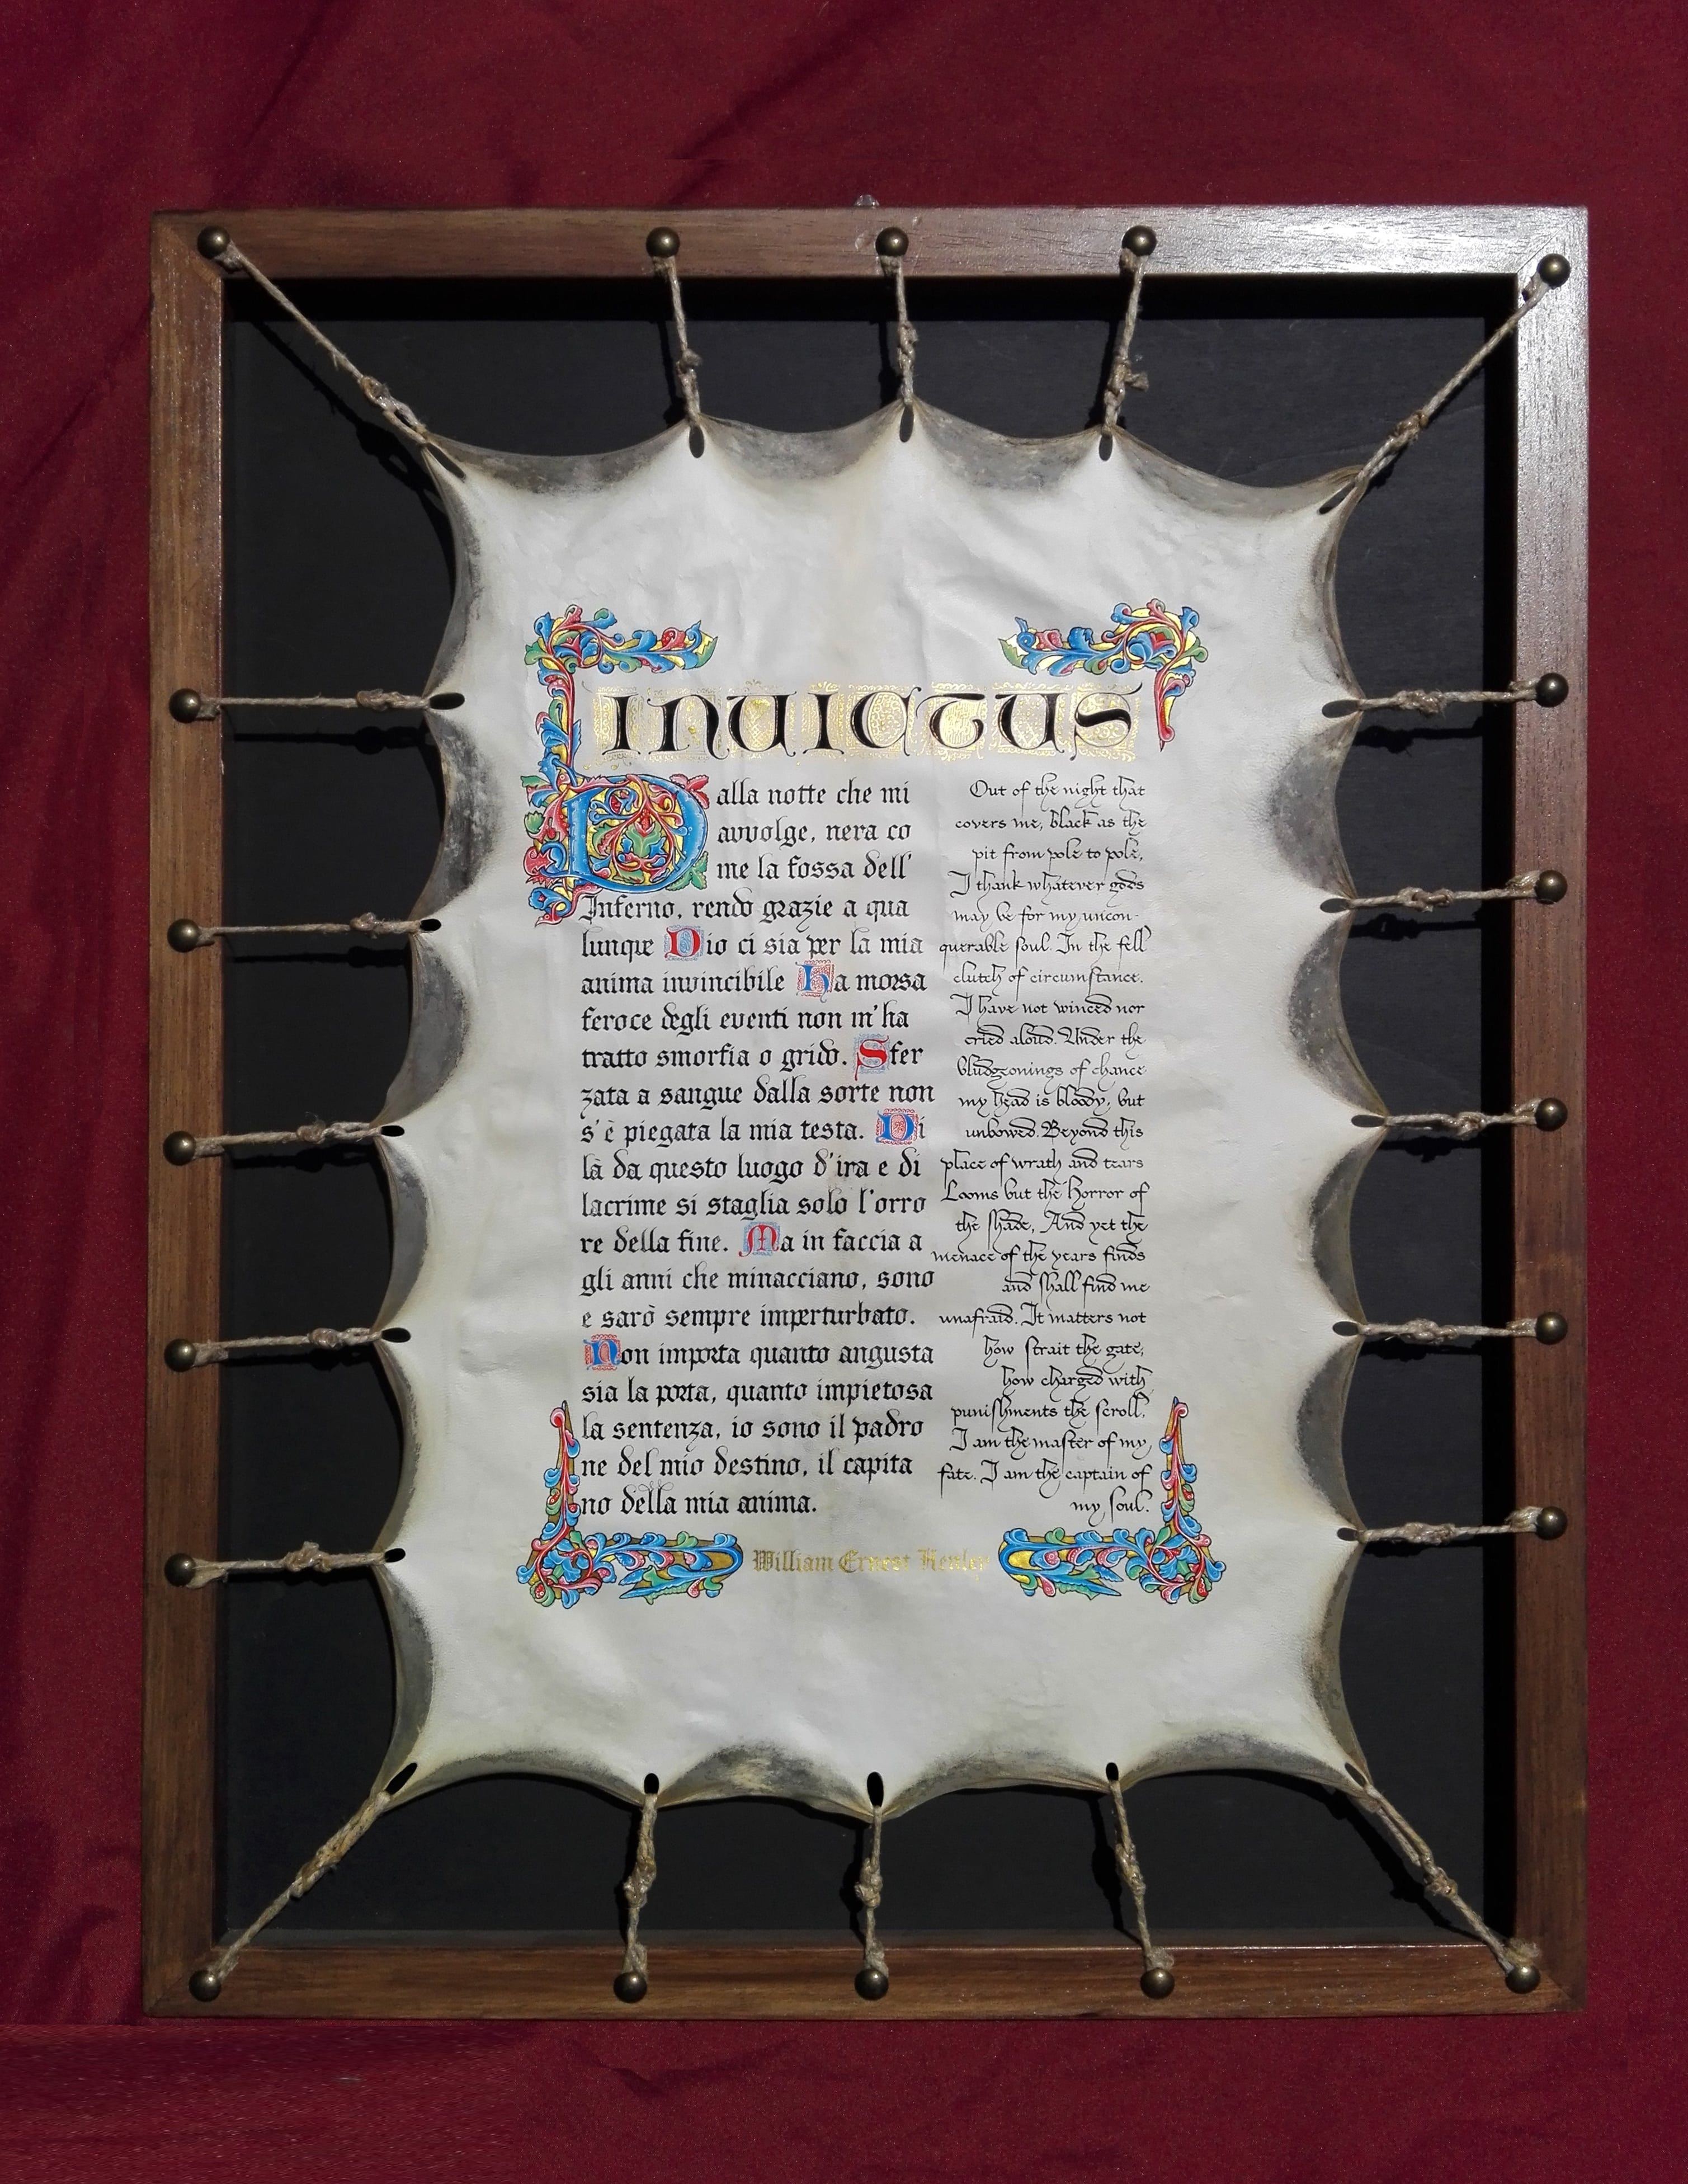 INVICTUS
Dalla notte che mi
avvolge, nera co
me la fossa dell'
Inferno, rendo grazie a qua
lunque Dio ci sia per la mia
anima invincibile Ha morsa
feroce degli eventi non m'ha
tratto smorfia o grido. Sfer
zata a sangue dalla sorte non
s'è piegata la mia testa. Di
là da questo luogo d'ira e di
lacrime si staglia solo l'orro
re della fine. Ma in faccia a
gli anni che minacciano, sono
e sarò sempre imperturbato.
Non importa quanto angusta
sia la porta, quanto impietosa
la sentenza, io sono il padro
ne del mio destino, il capita
no della mia anima.
Out of the night that
covers me, black as the
pit from pole to pole,
I thank whatever gods
may be for my uncon-
querable soul. In the fell
clutch of circumstance.
I have not winced nor
cried aloud. Under the
bludgeonings of chance
my head is bloody, but
unbowed. Beyond this
place of wrath and tears
Looms but the Horror of
the shade, And yet the
menace of the years finds
and shall find me
unafraid. It matters not
how strait the gate,
how charged with
punishments the scroll.
I am the master of my
fate. I am the captain of
my soul.
William Ernest Henley